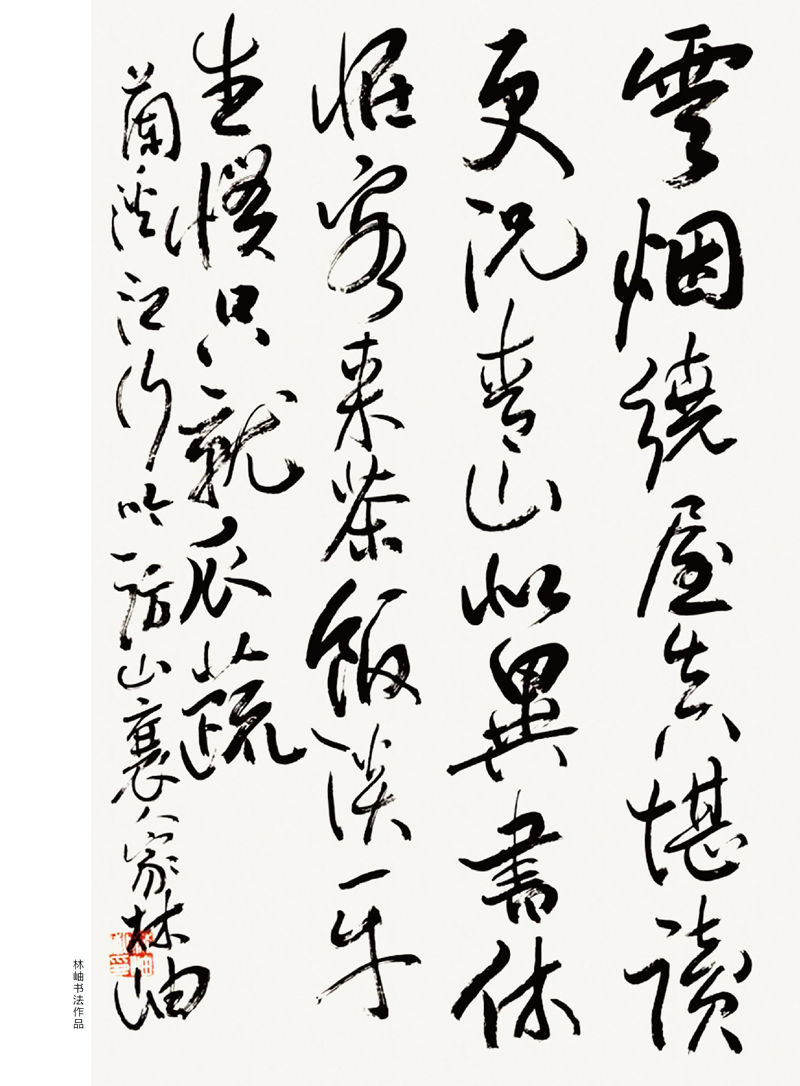 雲烟繞屋真堪讀
更况青山似異書休
怪客來茶飯淡平
生慣只就瓜蔬
蘭溪江行吟訪山裏人家林岫
林岫书法作品